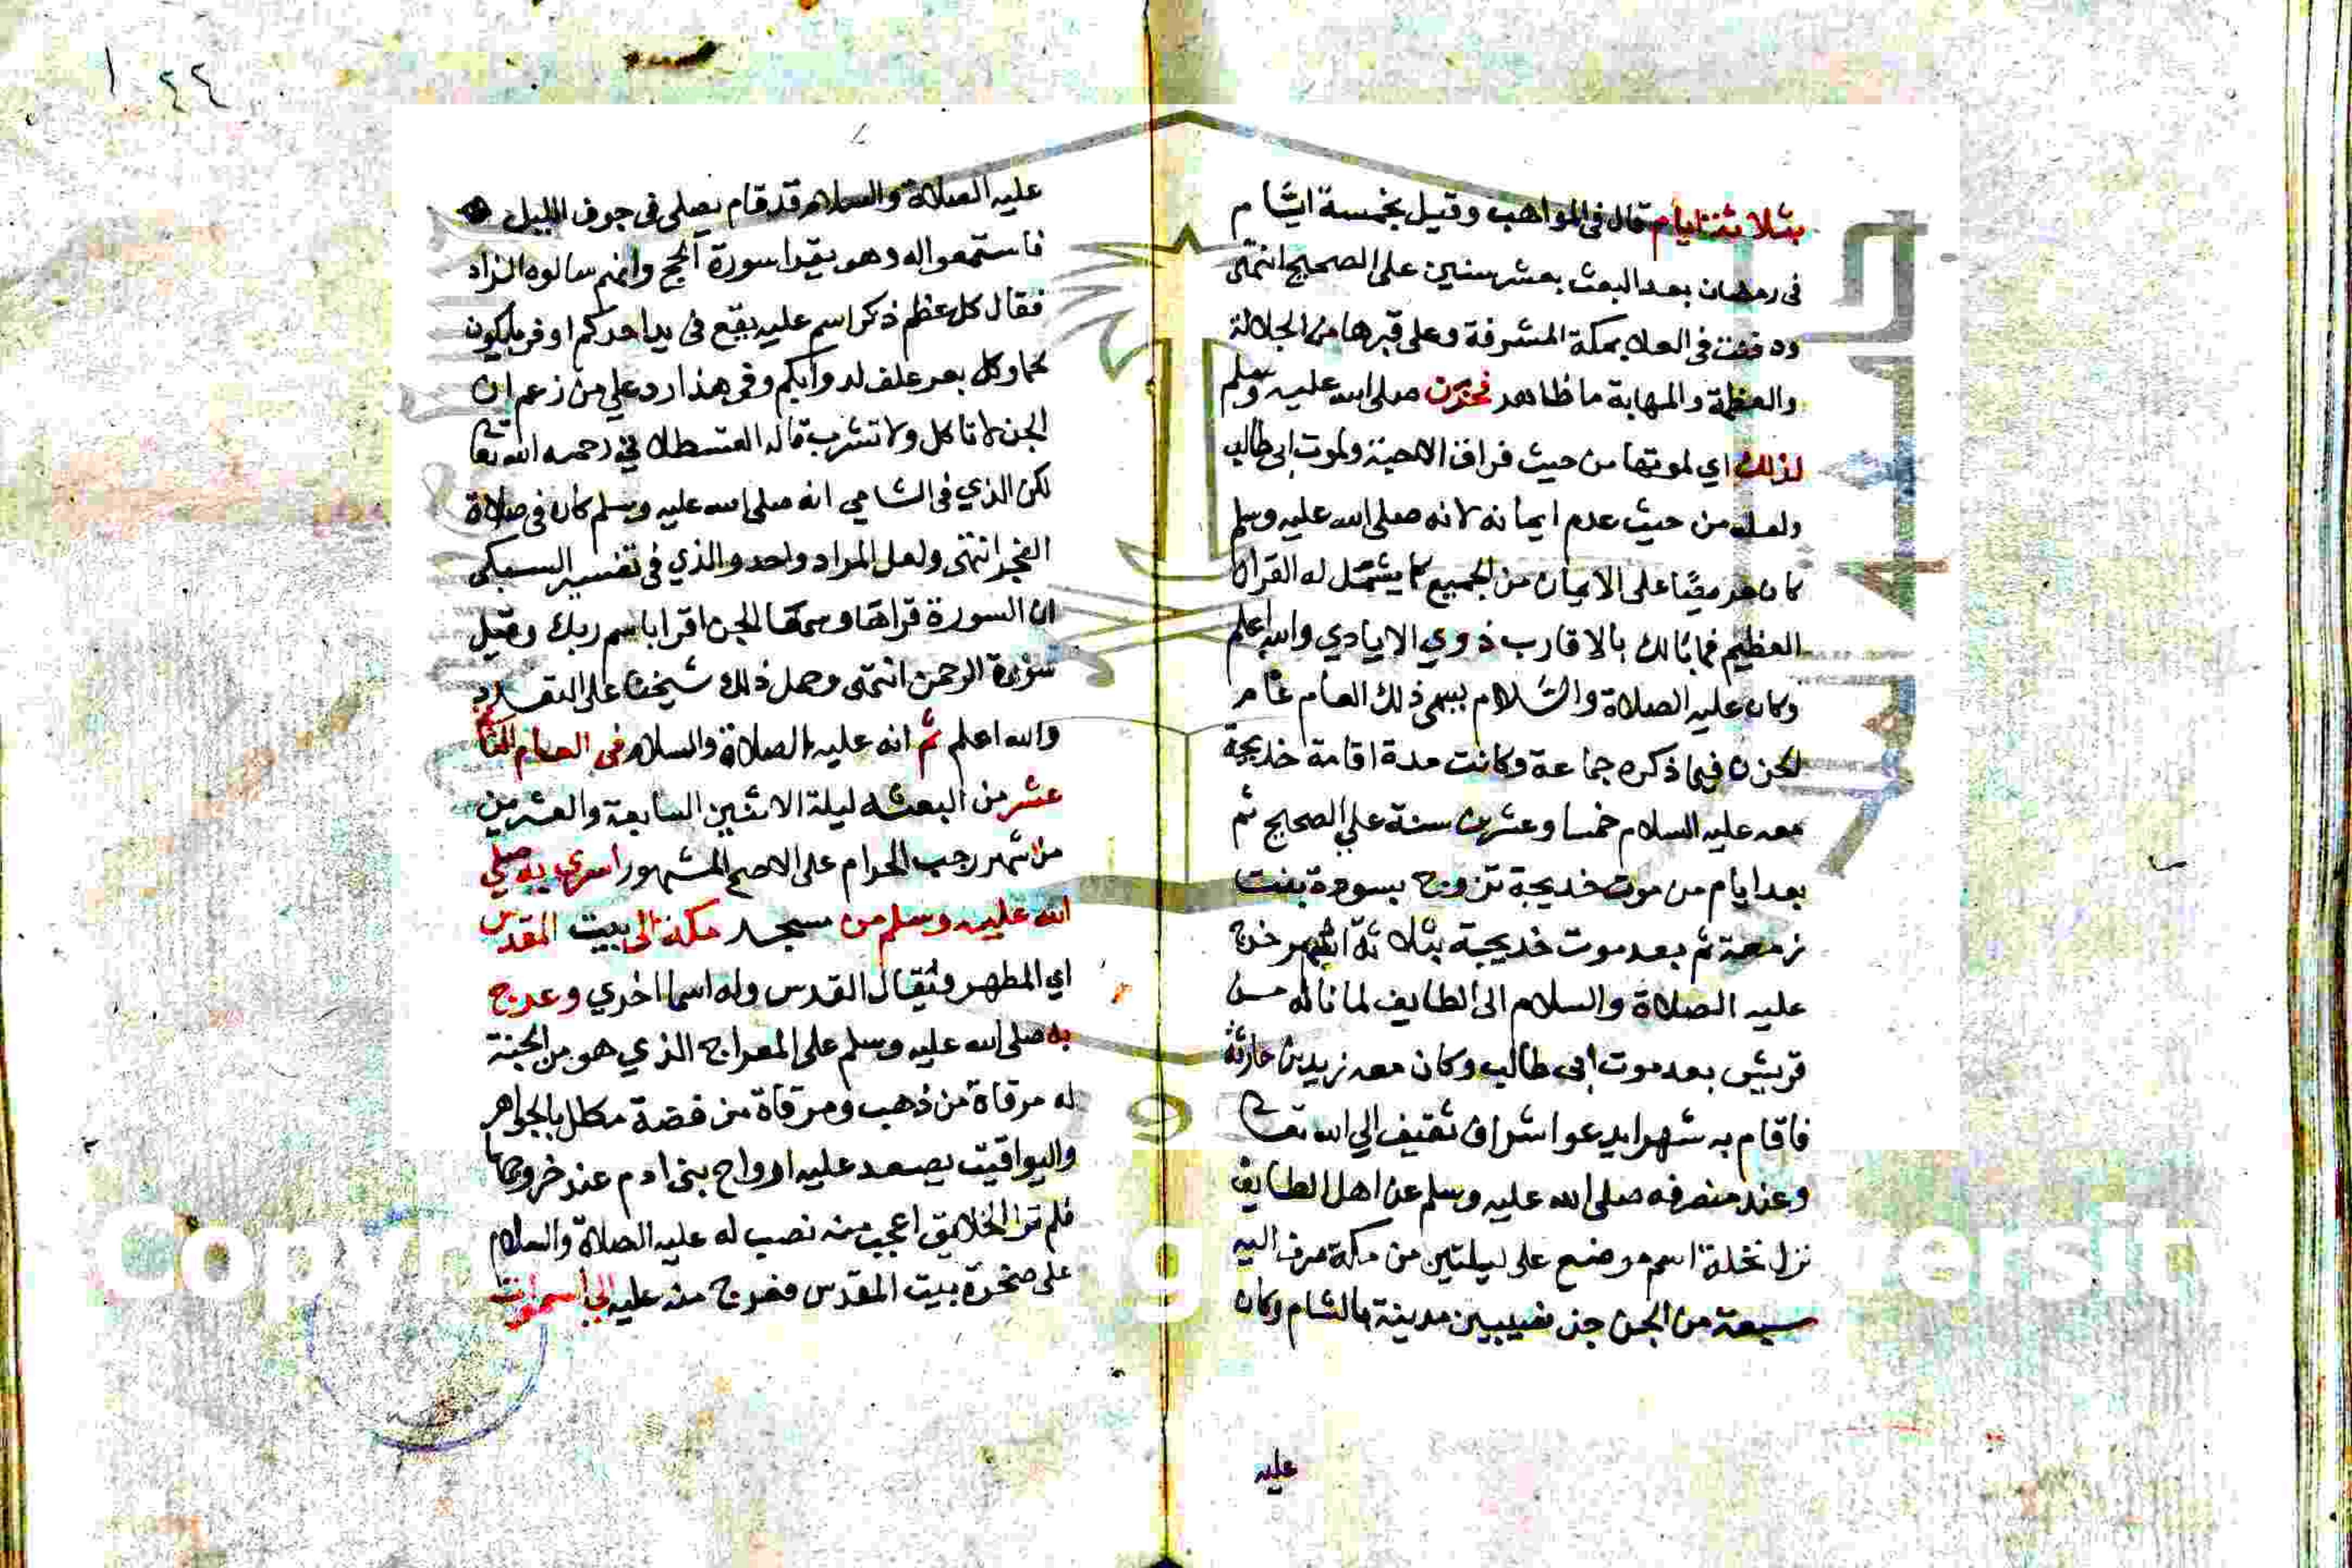 بثلاثة ايام قال فى المواهب وقيل بخمسة ايام
فى رمضان بعد البعث بعشر سنين على الصحيح انتهى
ودفنت فى المعلا بمكة المشرفة وعلى قبرها من الجلالة
والعظمة والمهابة ما ظاهر فحزن صلى الله عليه وسلم
لذلك اي لموتها من حيث فراق الاحبة ولموت ابى طالب
ولعله من حيث عدم ايمانه لانه صلى الله عليه وسلم
كان حريصا على الايمان من الجميع كما يشهد له القران
العظيم فما بالك بالاقارب ذوي الايادي والله اعلم
وكان عليه الصلاة والسلام يسمى ذلك العام عام
الحزن فيما ذكره جماعة وكانت مدة اقامة خديجة
معه عليه السلام خمسا وعشرين سنة علي الصحيح ثم
بعد ايام من موت خديجة تزوج بسودة بنت
زمعة ثم بعد موت خديجة بثلاثة اشهر خرج
عليه الصلاة والسلام الى الطايف لما ناله من
قريش بعد موت ابى طالب وكان معه زيد بن حارثة
فاقام به شهرا يدعوا اشراف ثقيف الي الله تعا
وعند منصرفه صلى الله عليه وسلم عن اهل الطايف
نزل نخلة اسم موضع على ليلتين من مكة صرف اليه
سبعة من الجن جن نصيبين مدينة بالشام وكان
عليه
٢٤٤
عليه الصلاة والسلام قد قام يصلى فى جوف الليل
فاستمعوا له وهو يقرا سورة الجن وانهم سالوه الزاد
فقال كل عظم ذكر اسم عليه يقع فى يد احدكم اوفر ما يكون
لحما وكل بعر علف لدوابكم وفى هذا رد علي من زعم ان
الجن لا تاكل ولا تشرب قاله القسطلاني رحمه الله تعا
لكن الذي فى الشامي انه صلى الله عليه وسلم كان فى صلاة
الفجر انتهى ولعل المراد واحد والذي فى تفسير السبكى
ان السورة قراها وسمعها الجن اقرا باسم ربك وقيل
سورة الرحمن انتهى وحمل ذلك شيخنا على التعدد
والله اعلم ثم انه عليه الصلاة والسلام فى العام الثانى
عشر من البعثه ليلة الاثنين السابعة والعشرين
من شهر رجب الحرام على الاصح المشهور اسري به صلي
الله عليه وسلم من مسجد مكة الى بيت المقدس
اي المطهر ويقال القدس وله اسما اخري وعرج
به صلى الله عليه وسلم على المعراج الذي هو من الجنة
له مرقاة من ذهب ومرقاة من فضة مكلل بالجواهر
واليواقيت يصعد عليه ارواح بنى ادم عند خروجها
فلم تر الخلايق اعجب منه نصب له عليه الصلاة والسلام
على صخرة بيت المقدس فعرج منه عليه الي السموات